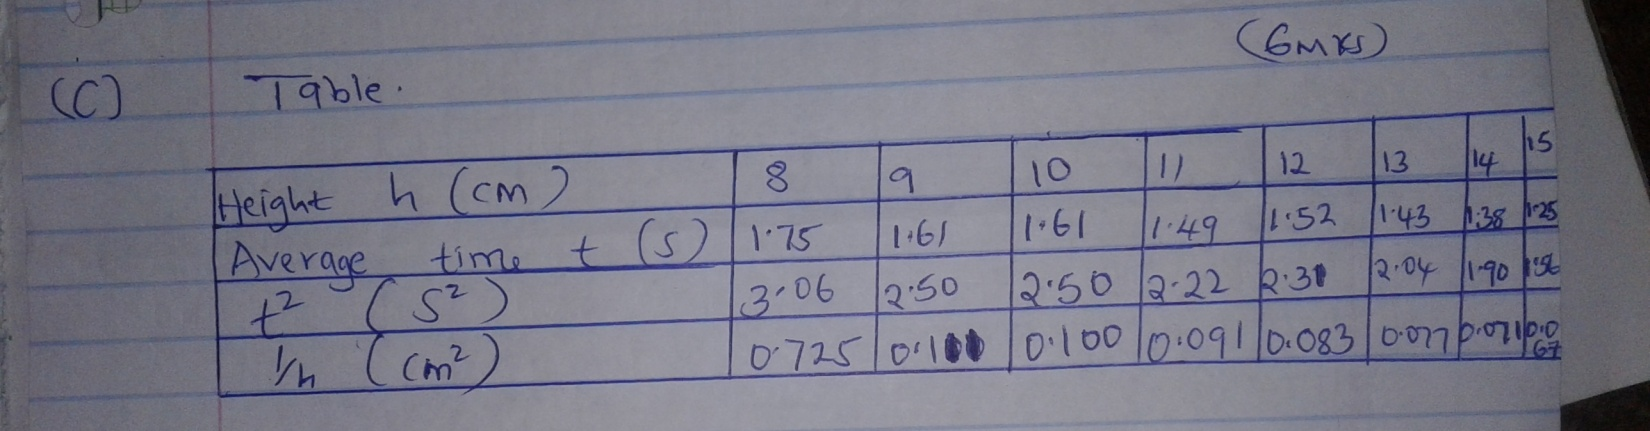 (6mks)
(C) Table.
Height h (cm) 8 9 10 11 12 13 14 15
Average time t (s) 1.75 1.61 1.61 1.49 1.52 1.43 1.38 1.25
t² (S²) 3.06 2.50 2.50 2.22 2.31 2.04 1.90 1.56
1/h (cm²) 0.725 0.100 0.091 0.083 0.077 0.071 0.067